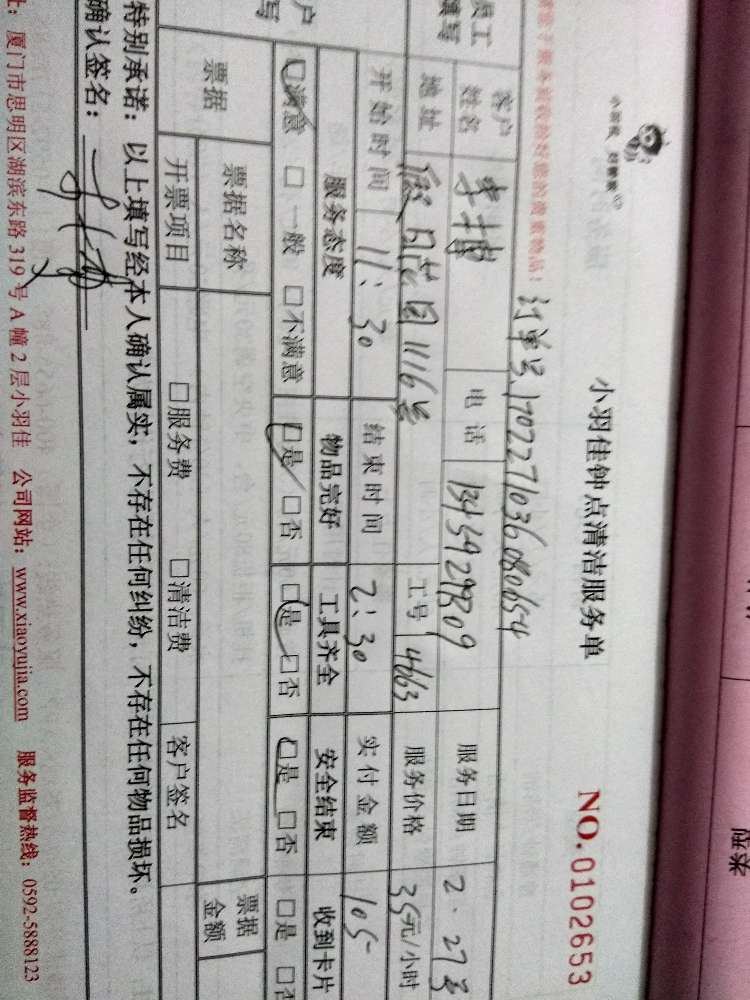 小羽佳 好管家
小羽佳钟点清洁服务单
NO.0102653
服务前收拾好您的贵重物品！
订单号1702271036080654
员工
填写
客户
姓名
李
电话
服务日期
2.27
地址
假日花园1116号
工号
4663
服务价格
35元/小时
开始时间
11:30
结束时间
2:30
实付金额
105
服务态度
物品完好
工具齐全
安全结束
收到卡片
☐满意 ☐一般 ☐不满意
☐是 ☐否
☐是 ☐否
☐是 ☐否
☐是 ☐否
票据
票据名称
票据
金额
开票项目
☐服务费 ☐清洁费
客户签名
特别承诺：以上填写经本人确认属实，不存在任何纠纷，不存在任何物品损坏。
确认签名：
址：厦门市思明区湖滨东路 319 号 A 幢 2 层小羽佳 公司网站：www.xiaoyujia.com 服务监督热线：0592-5888123